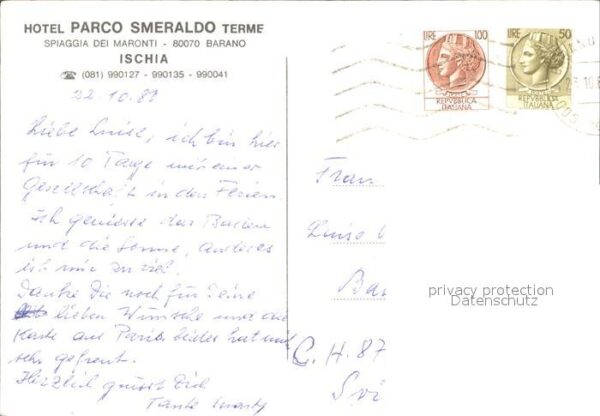 HOTEL PARCO SMERALDO TERME
SPIAGGIA DEI MARONTI - 80070 BARANO
ISCHIA
☎ (081) 990127 - 990135 - 990041
22.10.81
Liebe Luise, ich bin hier
für 10 Tage mit einer
Gesellschaft in den Ferien.
Ich geniesse das Baden
und die Sonne, anderes
ist mir zu viel.
Danke Dir noch für Deine
lieben Wünsche und die
Karte aus Paris, beides hat mich
sehr gefreut.
Herzlich grüsst Dich
Tante
LIRE 100
REPVBBLICA
ITALIANA
LIRE 50
REPVBBLICA
ITALIANA
Frau
Luise
privacy protection
Datenschutz
C.H. 87